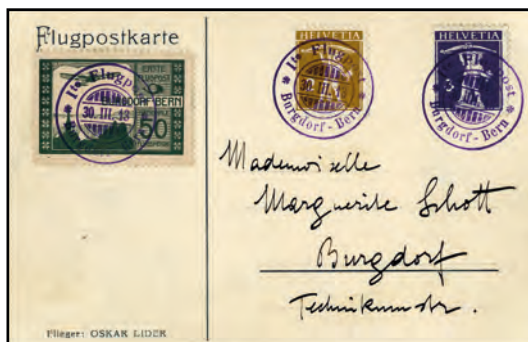 Flugpostkarte
ERSTE
FLUGPOST
BURGDORF BERN
30. III. 13
50
HELVETIA
Ite Flugpost
30. III. 1
Burgdorf - Bern
HELVETIA
Burgdorf - Bern
Mademoiselle
Marguerite Schott
Burgdorf
Technikumstr.
Flieger: OSKAR BIDER